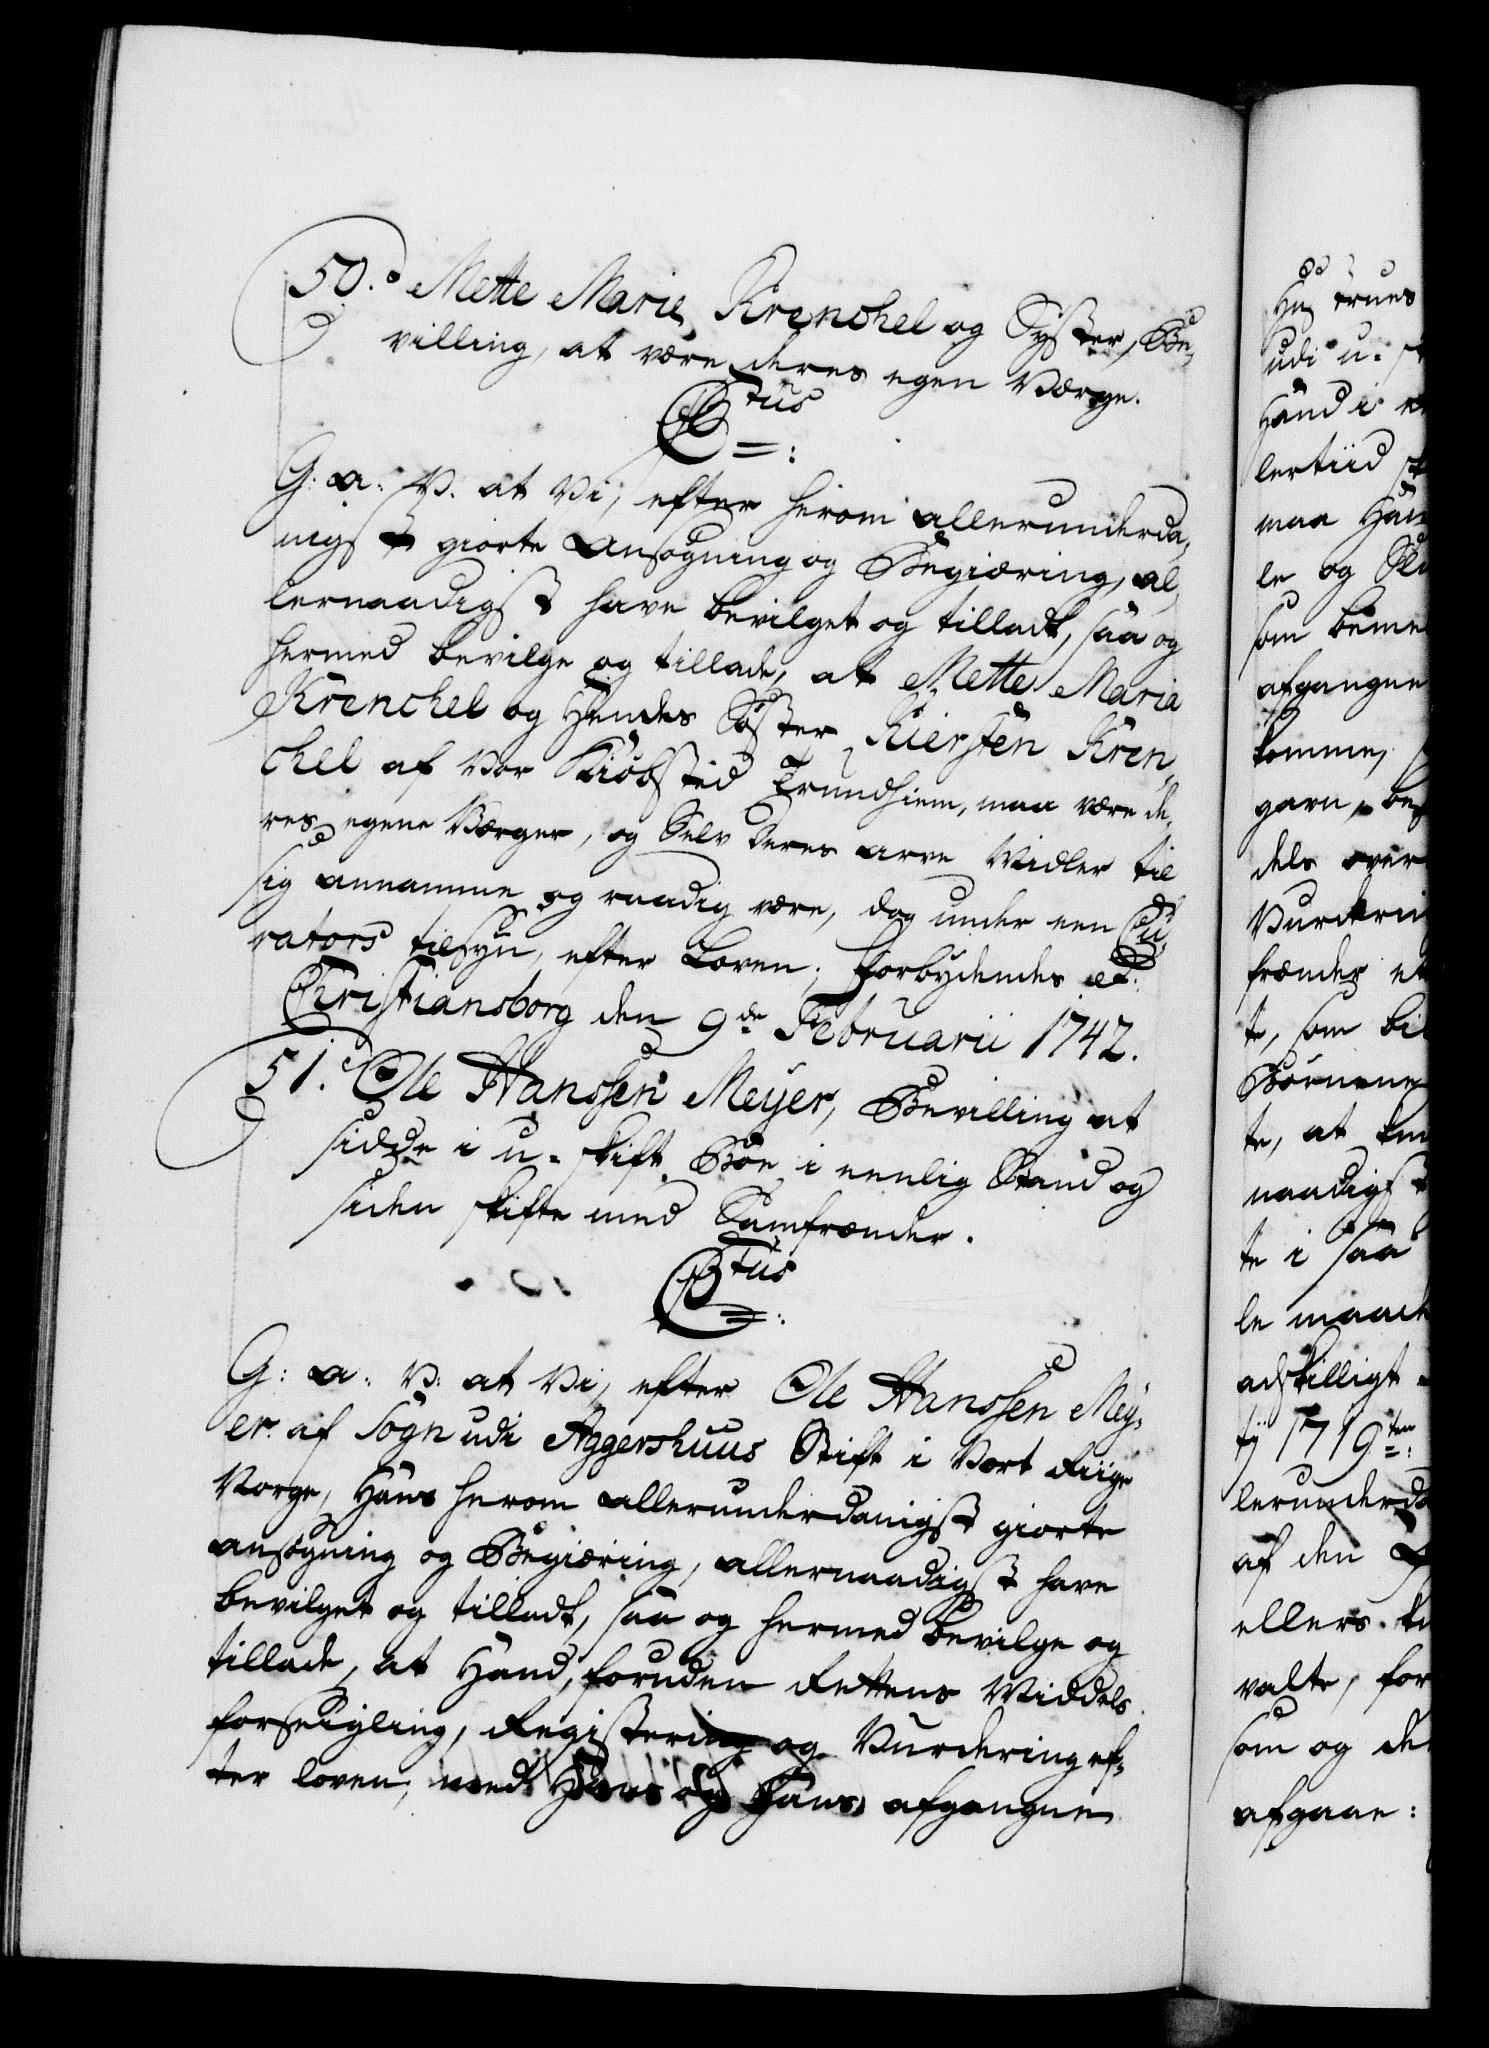 50. Mette Marie Krenchel og Syster, Be-
villing, at være deres egen Værge.
C6tus
G: a: V. at Vi, efter herom allerunderda-
nigst giorte Ansøgning og Begiæring, al-
lernaadigst have bevilget og tilladt, saa og
hermed bevilge og tillade, at Mette Marie
Krenchel og Hendes Søster Kiersten Kren-
chel af Vor Kiøbsted Trundhiem, maa være de-
res egene Værger, og Selv deres arve Midler til
sig annamme og raadig være, dog under een Cu-
rators tilsyn, efter Loven; Forbydendes etc:
Christiansborg den 9de Februarii 1742.
51. Ole Hanssen Meyer, Bevilling at
sidde i u-skift Boe i eenlig Stand og
siden skifte med Samfrænder.
C6tus
G: a: V: at Vi, efter Ole Hanssen Mey-
er af Sogn udi Aggershuus Stift i Vort Riige
Norge, Hans herom allerunderdanigst giorte
ansøgning og Begiæring, allernaadigst have
bevilget og tilladt, saa og hermed bevilge og
tillade, at Hand, foruden Rettens Middels
forseigling, Registering og Vurdering ef-
ter loven, med Hans og Hans afgangne
Hustrues
udi u-
Hand i
lertiid
maa Han
le og
som beme
afgangne
komme,
gavn,
dels over
Vurderin
frænder
te, som bi
Børnene
te, at
naadigst
te i saa
le maade
adskilligt
ij 1719ten
lerunderda
af den
ellers
valte, for
som og de
afgaae: